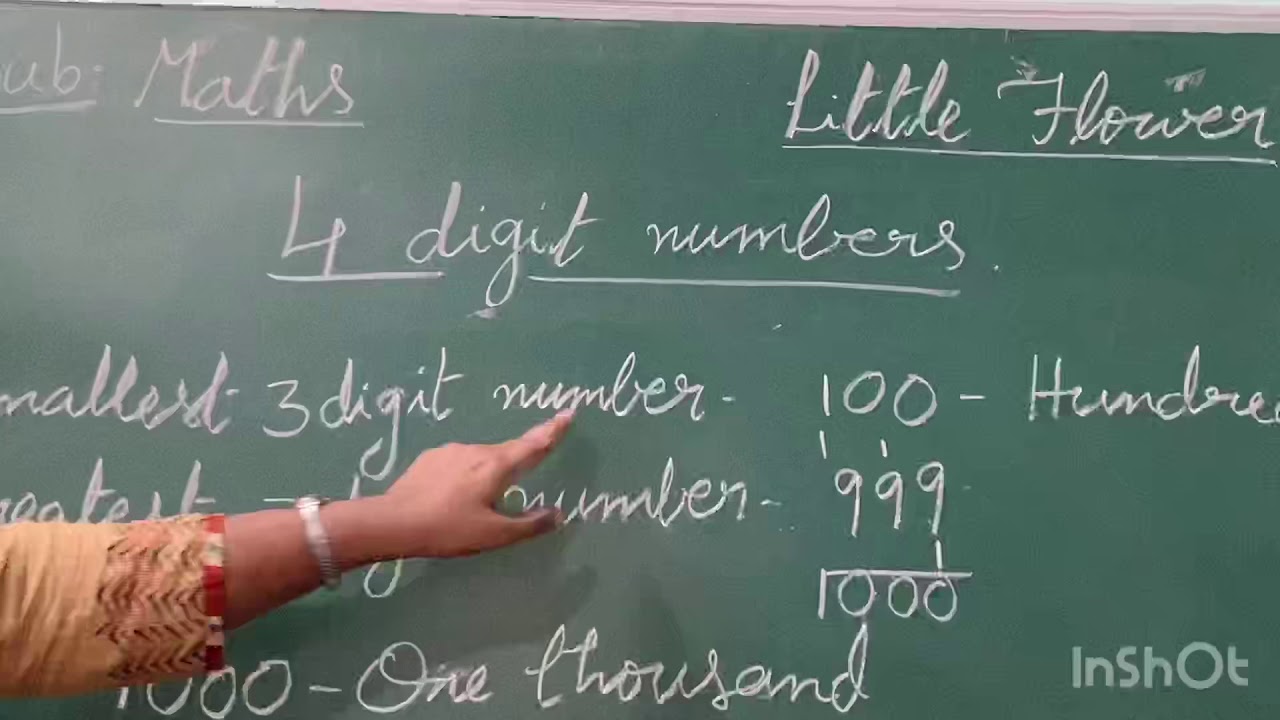 Sub: Maths
Little Flower
4 digit numbers.
Smallest 3 digit number - 100 - Hundred
1 1
Greatest number - 999
1
1000
1000 - One thousand
InShOt